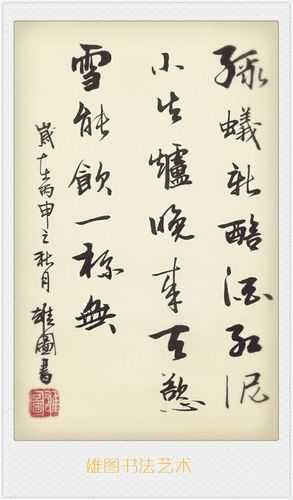 綠蟻新醅酒紅泥
小火爐晚來天慾
雪能飲一杯無
歲在丙申之秋月雄圖書
雄圖
雄图书法艺术